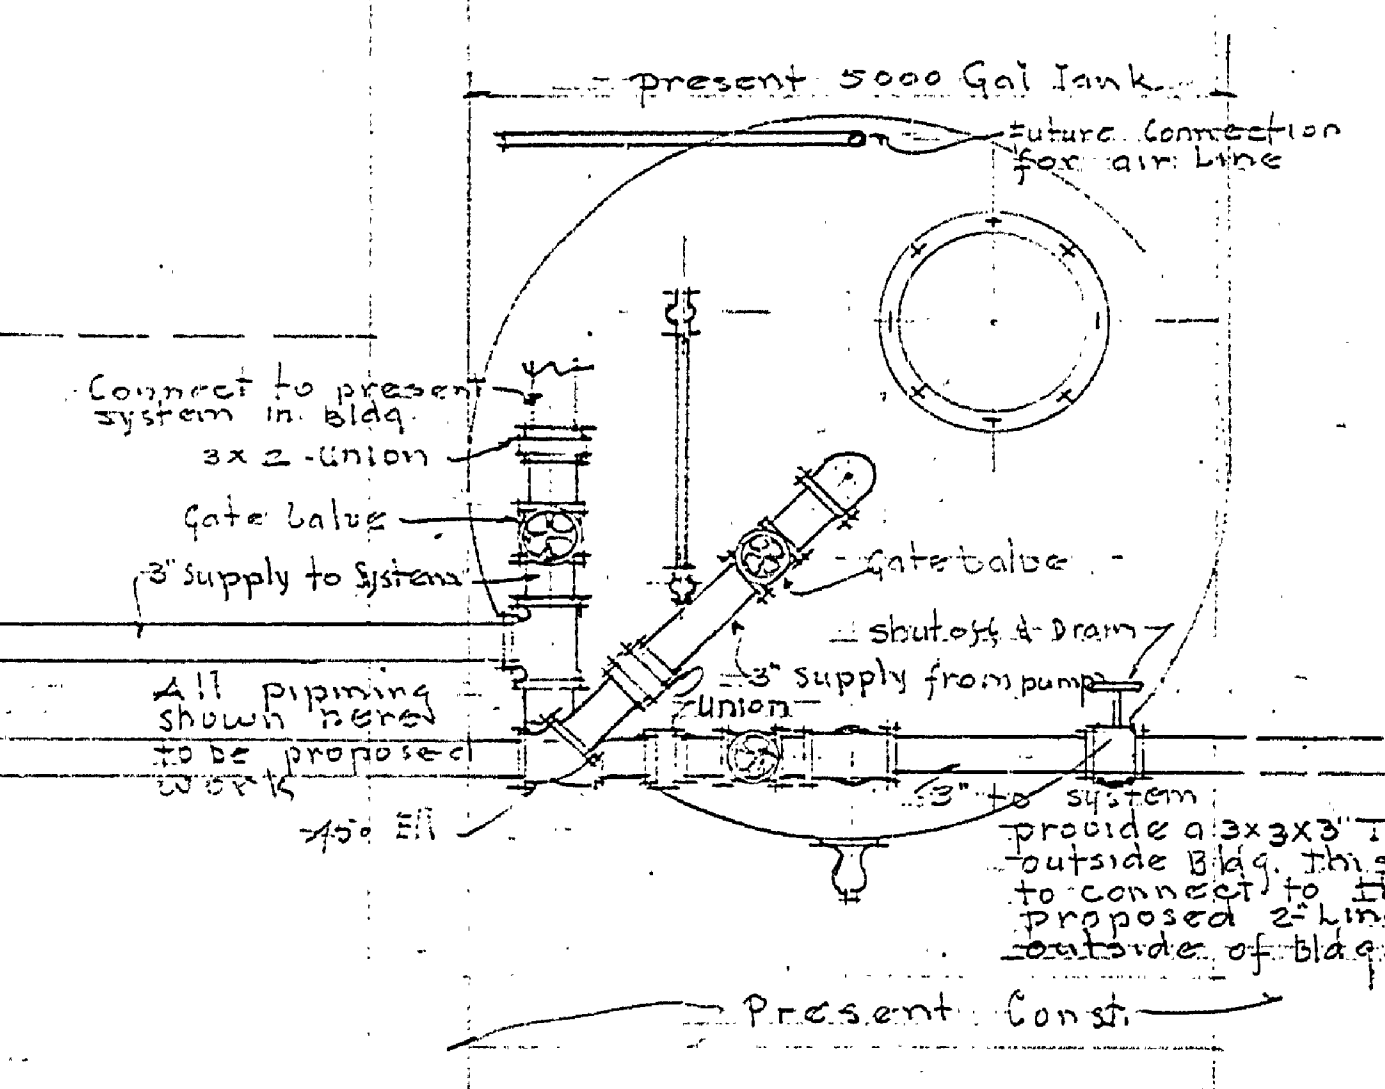 present 5000 Gal Tank
Future Connection
for air Line
Connect to present
system in Bldg.
3 x 2 - Union
Gate Valve
Gate Valve
3" Supply to System
Shutoff & Drain
3" Supply from pump
Union
All pipining
shown here
to be proposed
work
45° Ell
3" to system
provide a 3x3x3" T
outside Bldg. This
to connect to
proposed 2" Lin
outside of Bldg
Present Const.